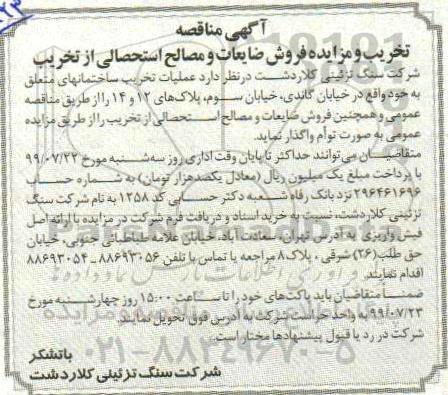 آگهی مناقصه
تخریب و مزایده فروش ضایعات و مصالح استحصالی از تخریب
شرکت سنگ تزئینی کلاردشت در نظر دارد عملیات تخریب ساختمانهای متعلق
به خود واقع در خیابان گاندی، خیابان سوم، پلاک‌های ۱۲ و ۱۴ را از طریق مناقصه
عمومی و همچنین فروش ضایعات و مصالح استحصالی از تخریب را از طریق مزایده
عمومی به صورت توأم واگذار نماید.
متقاضیان می‌توانند حداکثر تا پایان وقت اداری روز سه‌شنبه مورخ ۹۹/۰۷/۲۲
با پرداخت مبلغ یک میلیون ریال (معادل یکصدهزار تومان) به شماره حساب
۲۹۶۴۶۱۶۹۶ نزد بانک رفاه شعبه دکتر حسابی کد ۱۲۵۸ به نام شرکت سنگ
تزئینی کلاردشت، نسبت به خرید اسناد و دریافت فرم شرکت در مزایده با ارائه اصل
فیش واریزی به آدرس تهران، سعادت آباد، خیابان علامه طباطبائی جنوبی، خیابان
حق طلب (۲۶) شرقی، پلاک ۸ مراجعه یا تماس با تلفن ۸۸۶۹۳۰۵۶ ـ ۸۸۶۹۳۰۵۴
اقدام نمایند.
ضمناً متقاضیان باید پاکت‌های خود را تا ساعت ۱۵:۰۰ روز چهارشنبه مورخ
۹۹/۰۷/۲۳ به واحد حراست شرکت به آدرس فوق تحویل نمایند.
شرکت در رد یا قبول پیشنهادها مختار است.
۰۲۱-۸۸۳۴۹۶۷۰-۵
باتشکر
شرکت سنگ تزئینی کلاردشت